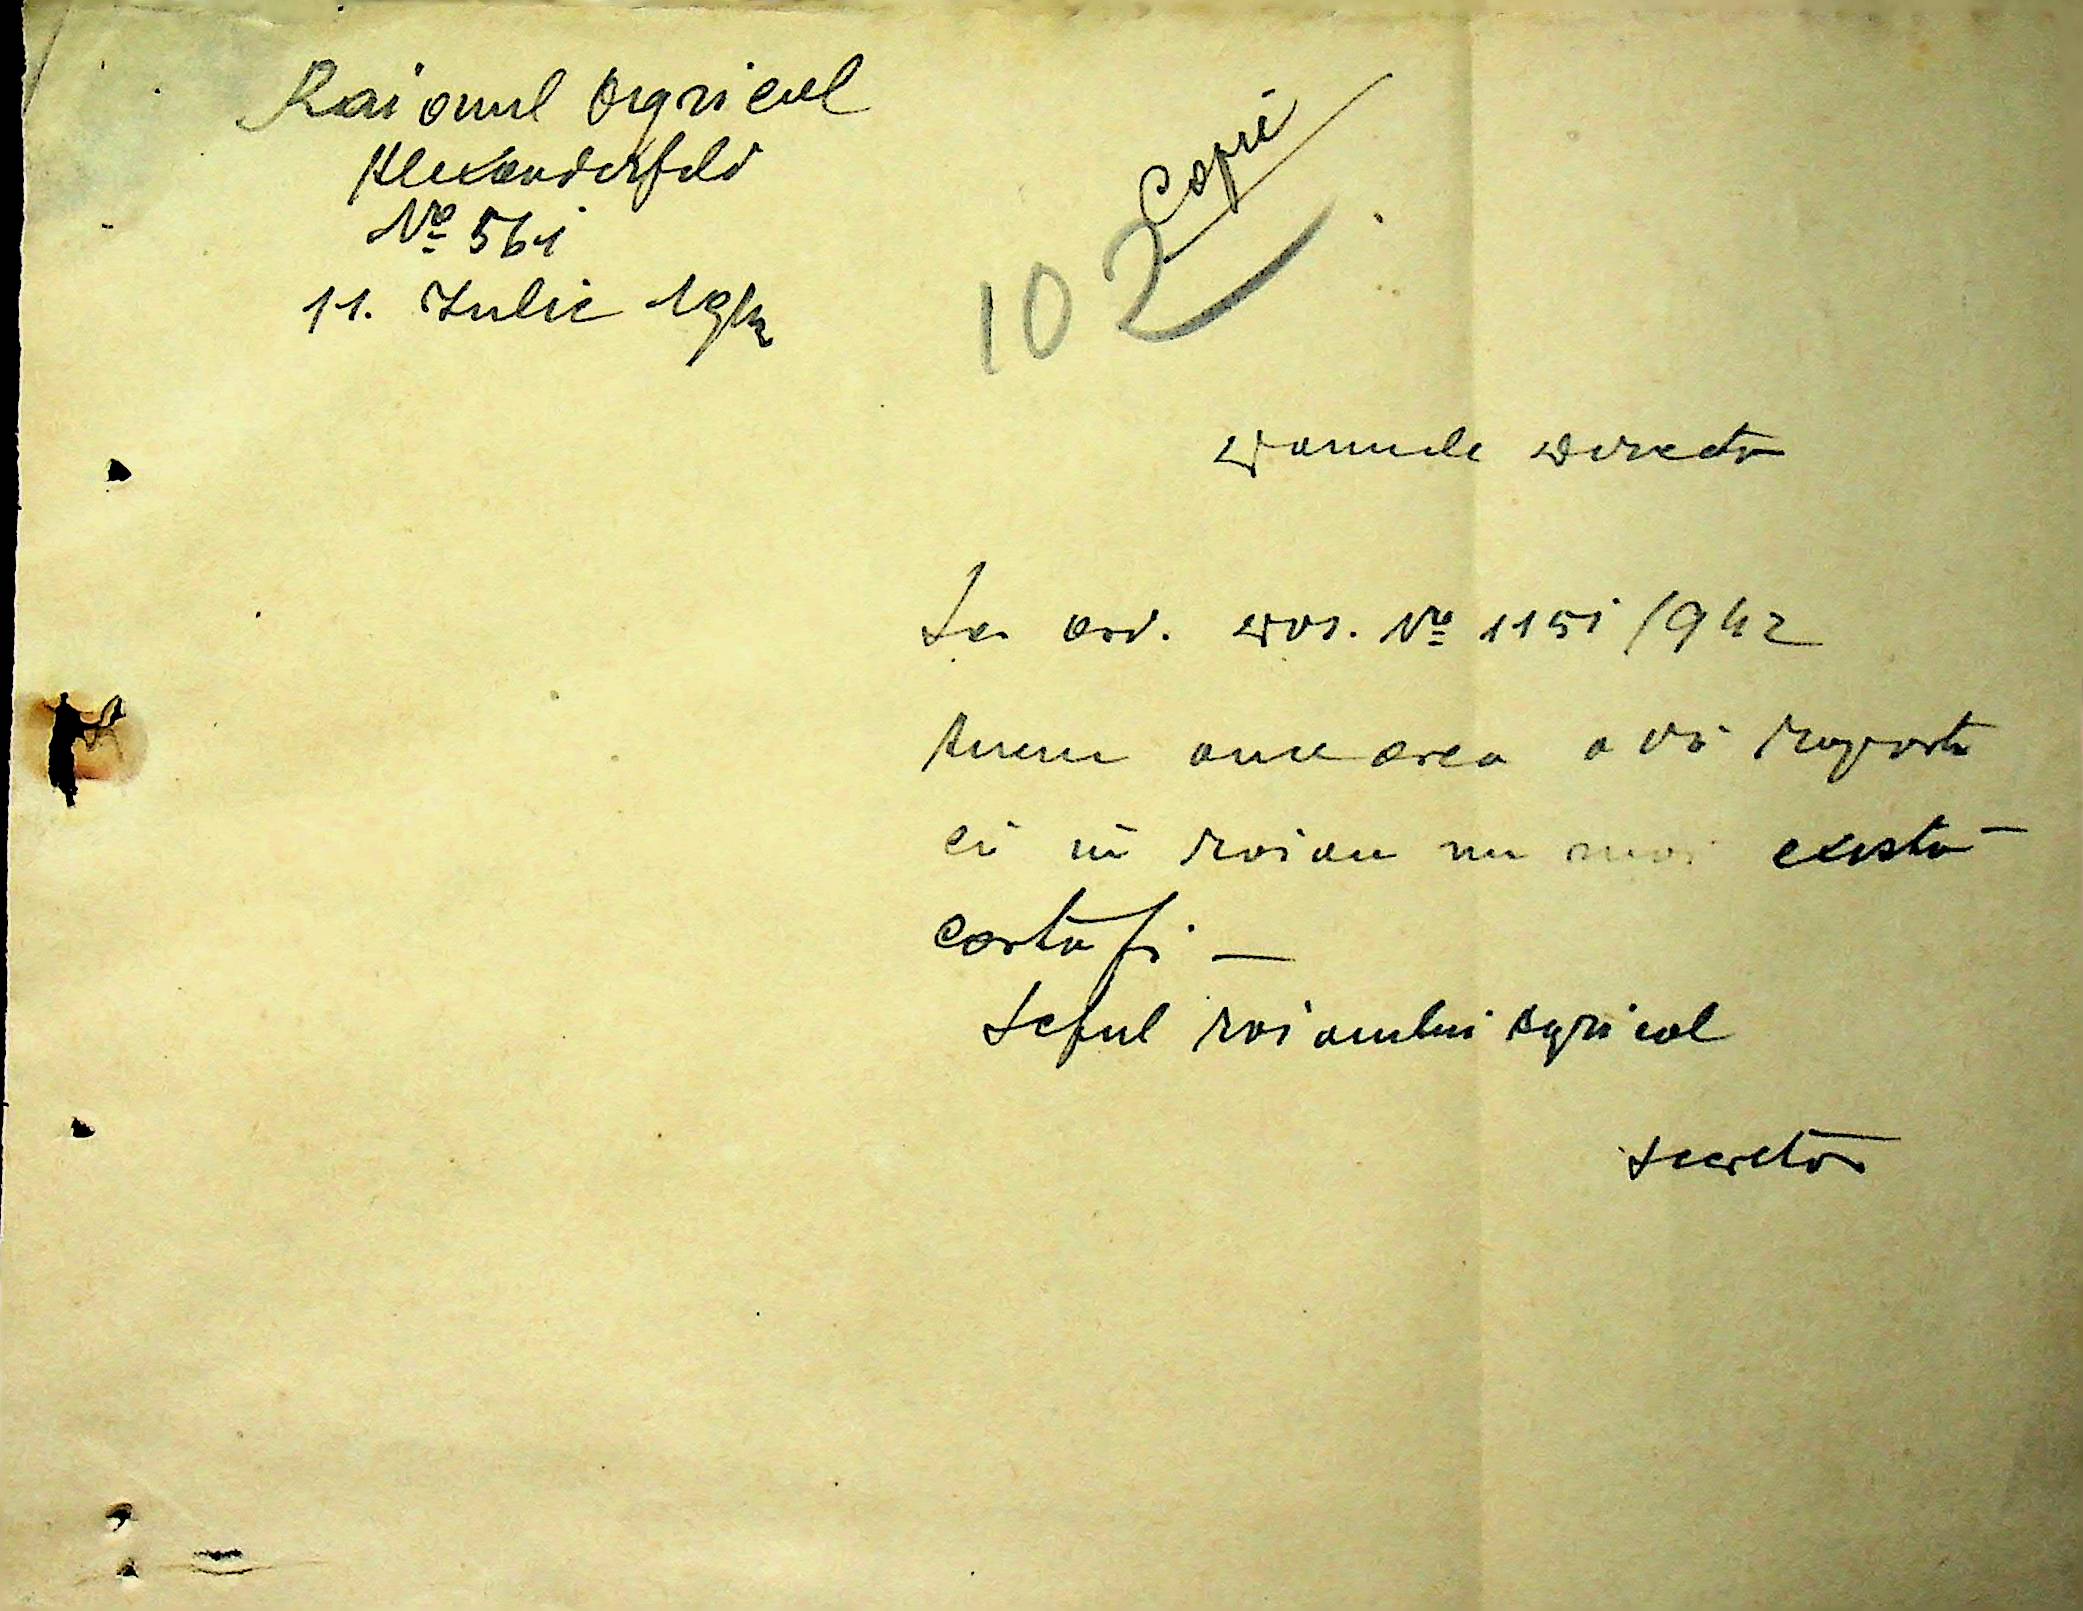 Raionul Agricol
Alexanderfeld
No 561
11. Iulie 1942
Copie
102
Domnule Director
La ord. Dvs. No 1151/942
avem onoarea a vă raporta
că în raion nu mai există
cartofi —
Șeful raionului Agricol
Secretar